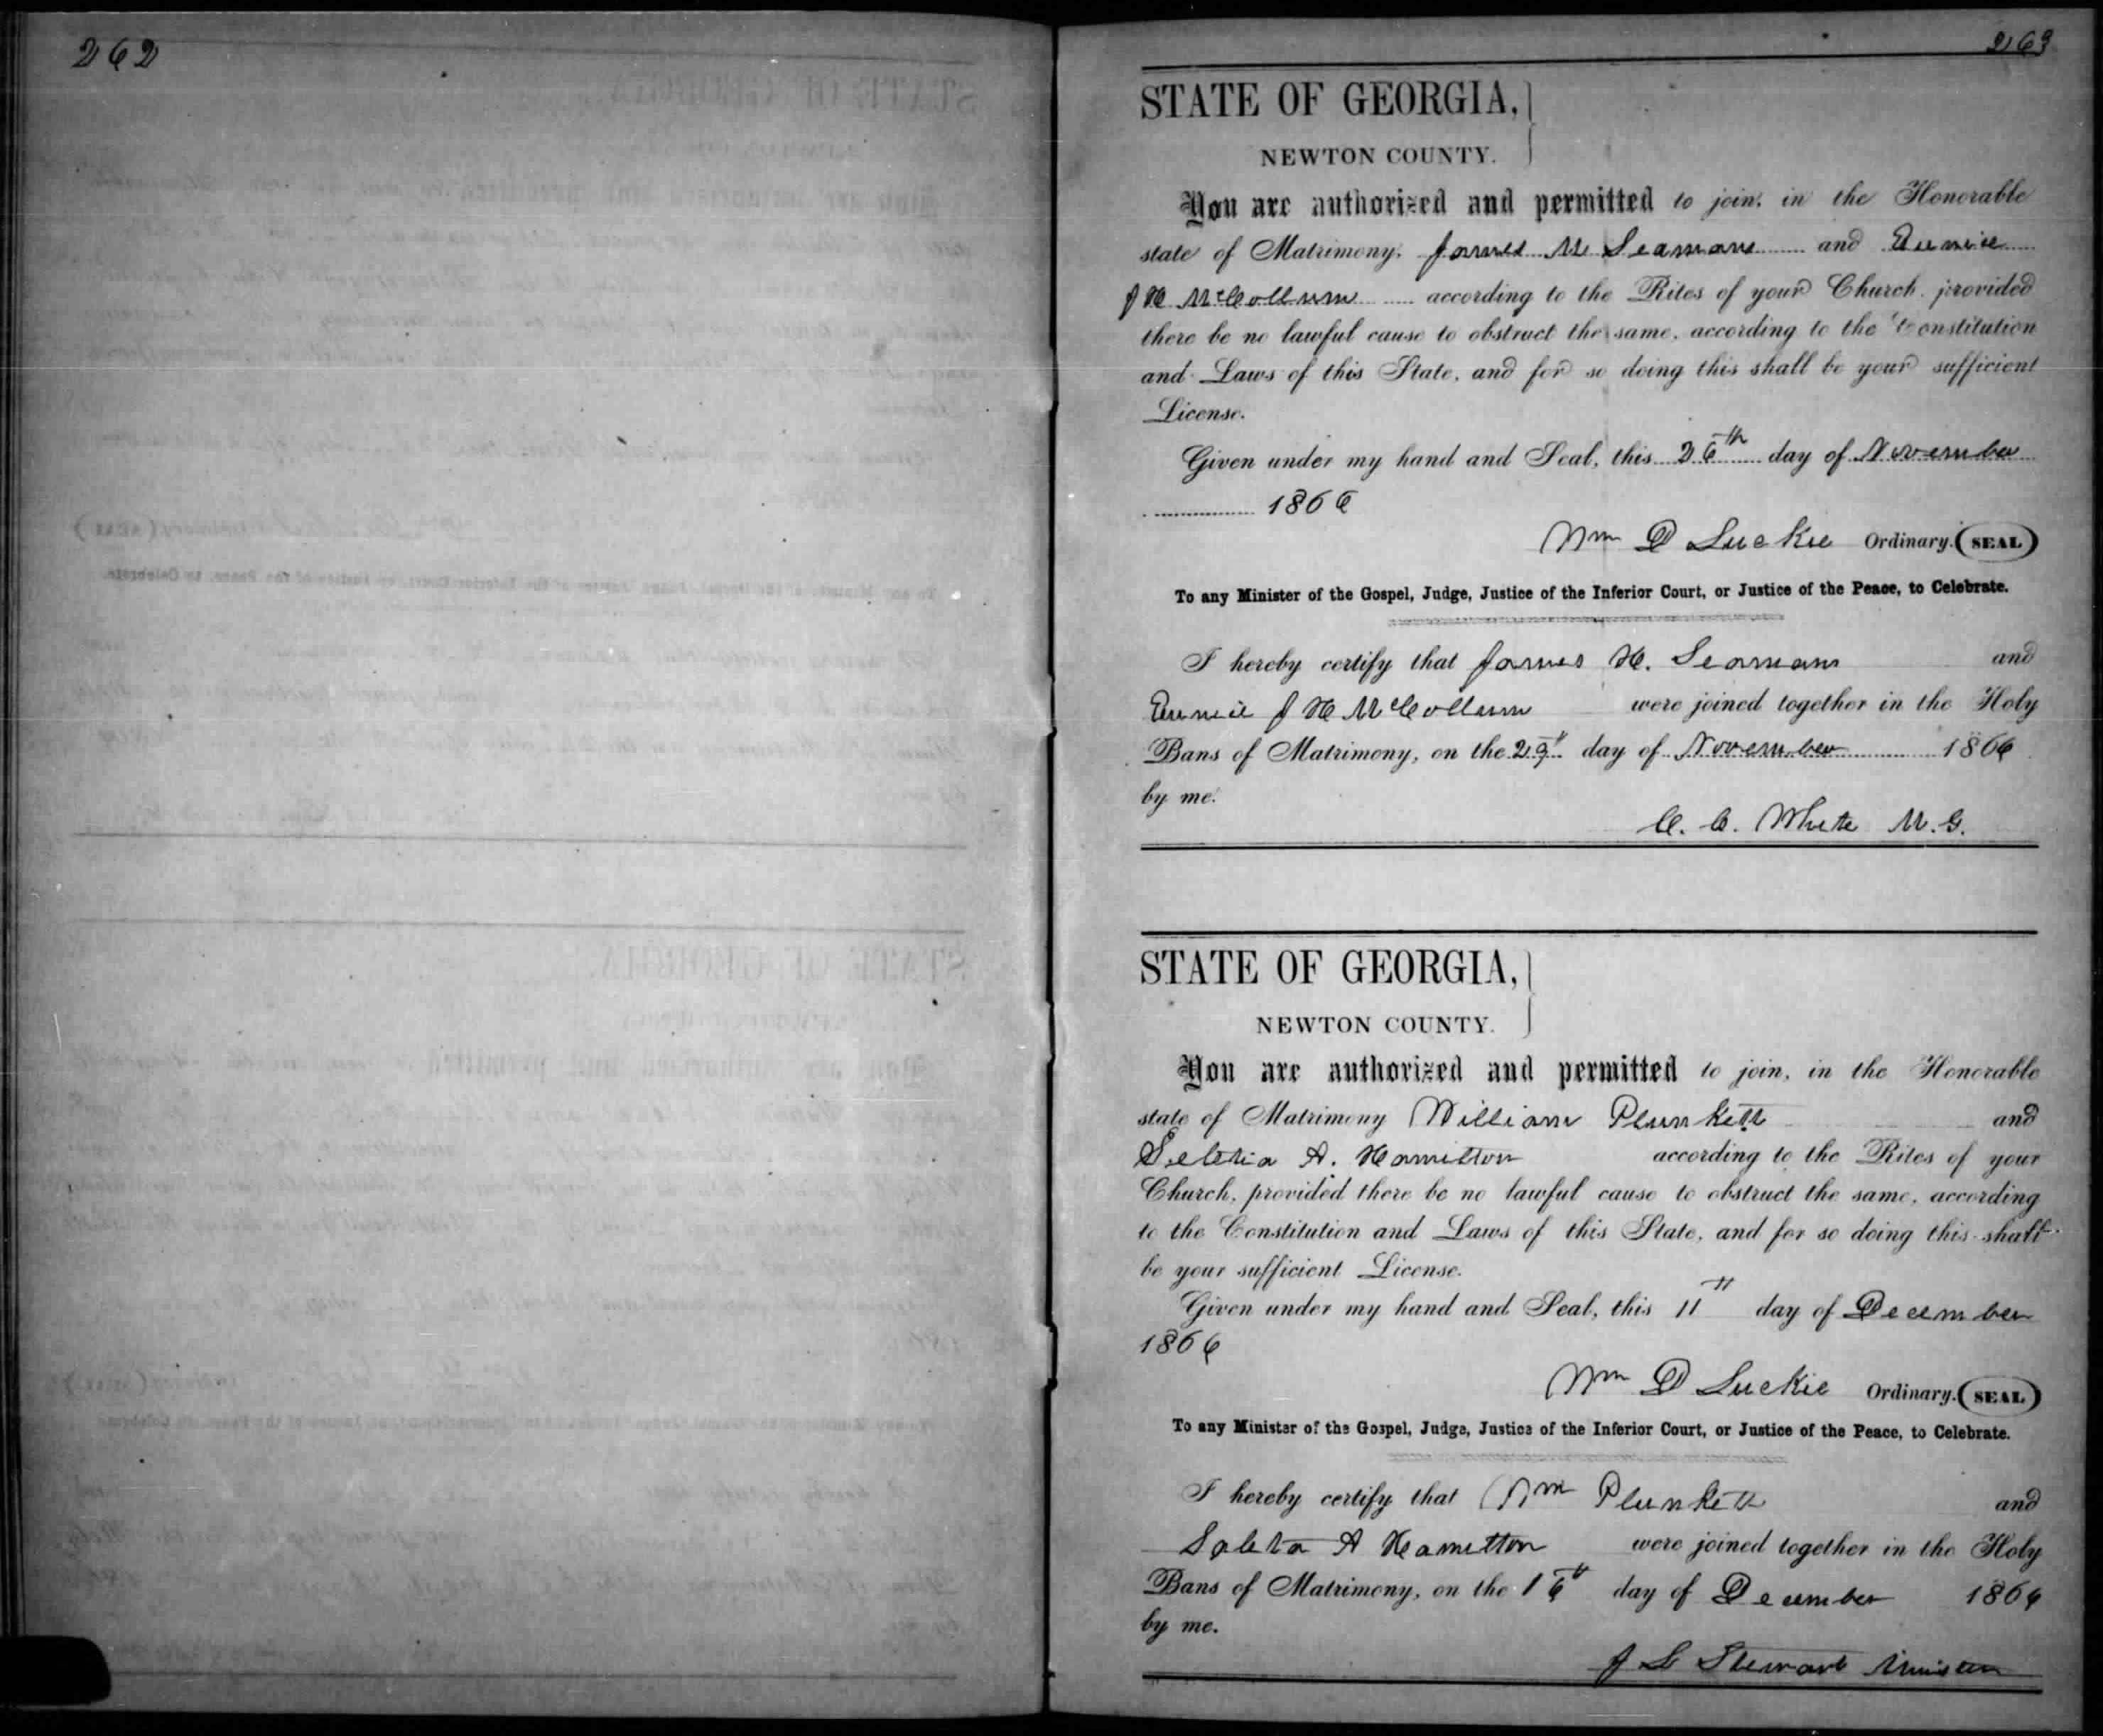 262
263
STATE OF GEORGIA,
NEWTON COUNTY.
You are authorized and permitted to join, in the Honorable
state of Matrimony, James M Seamans and Eunice
J H McCollum according to the Rites of your Church, provided
there be no lawful cause to obstruct the same, according to the Constitution
and Laws of this State, and for so doing this shall be your sufficient
License.
Given under my hand and Seal, this 26th day of November
1866
Wm D Luckie Ordinary. (SEAL)
To any Minister of the Gospel, Judge, Justice of the Inferior Court, or Justice of the Peace, to Celebrate.
I hereby certify that James H. Seamans and
Eunice J H McCollum were joined together in the Holy
Bans of Matrimony, on the 29" day of November 1866
by me.
C. C. White M. G.
STATE OF GEORGIA,
NEWTON COUNTY.
You are authorized and permitted to join, in the Honorable
state of Matrimony William Plunkett and
A. Hamilton according to the Rites of your
Church, provided there be no lawful cause to obstruct the same, according
to the Constitution and Laws of this State, and for so doing this shall
be your sufficient License.
Given under my hand and Seal, this 11" day of December
1866
Wm D Luckie Ordinary. (SEAL)
To any Minister of the Gospel, Judge, Justice of the Inferior Court, or Justice of the Peace, to Celebrate.
I hereby certify that Wm Plunkett and
A Hamilton were joined together in the Holy
Bans of Matrimony, on the 16" day of December 1866
by me.
J L Stewart Minister